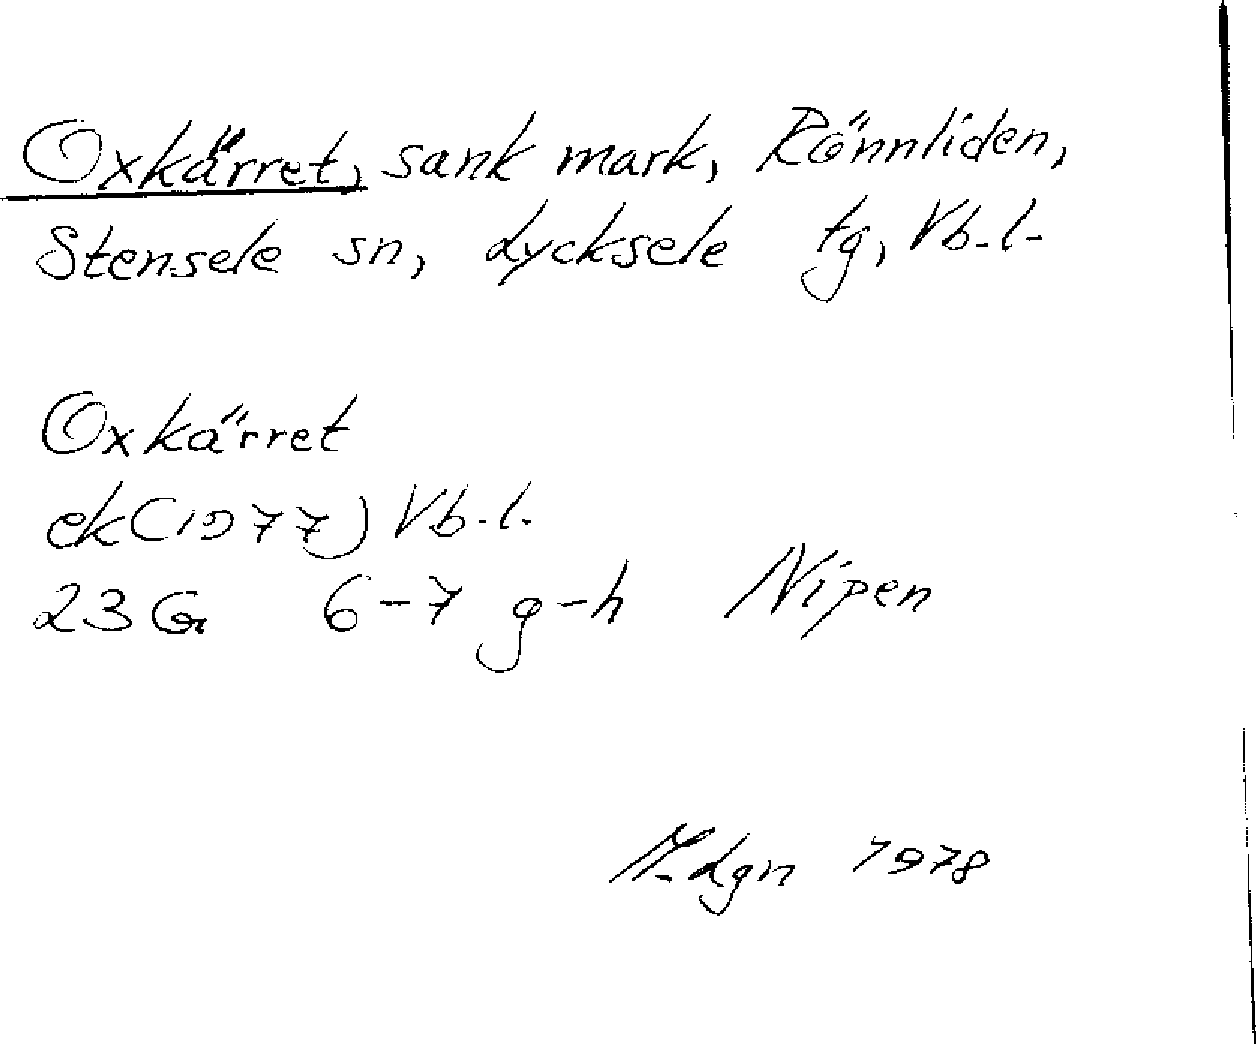 Oxkärret, sank mark, Rönnliden,
Stensele sn, Lycksele tg, Vb.l.
Oxkärret
ek(1977) Vb.l.
23G 6-7 g-h Nipen
Lgn 1978